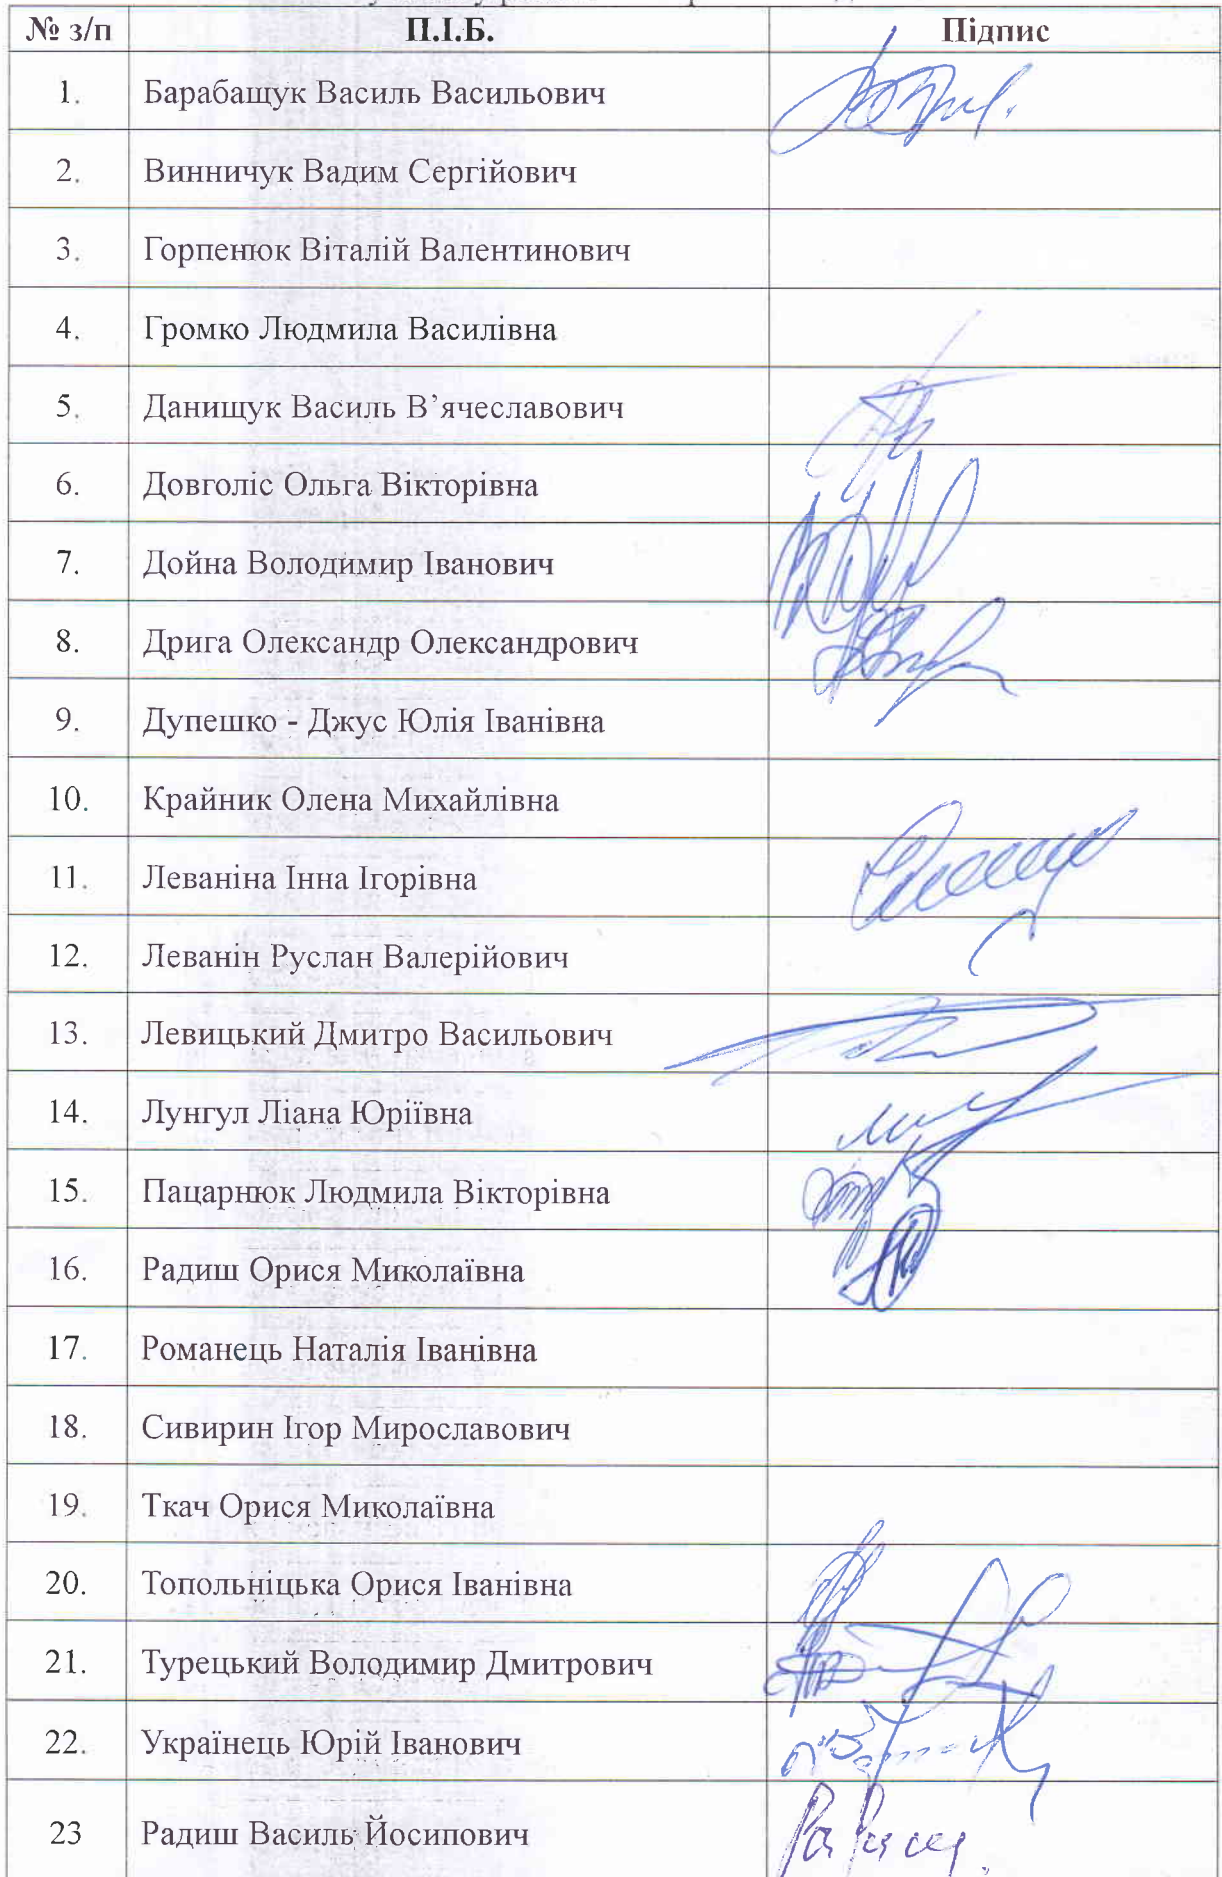 № з/п П.І.Б. Підпис
1. Барабащук Василь Васильович
2. Винничук Вадим Сергійович
3. Горпенюк Віталій Валентинович
4. Громко Людмила Василівна
5. Данищук Василь В’ячеславович
6. Довголіс Ольга Вікторівна
7. Дойна Володимир Іванович
8. Дрига Олександр Олександрович
9. Дупешко - Джус Юлія Іванівна
10. Крайник Олена Михайлівна
11. Леваніна Інна Ігорівна
12. Леванін Руслан Валерійович
13. Левицький Дмитро Васильович
14. Лунгул Ліана Юріївна
15. Пацарнюк Людмила Вікторівна
16. Радиш Орися Миколаївна
17. Романець Наталія Іванівна
18. Сивирин Ігор Мирославович
19. Ткач Орися Миколаївна
20. Топольніцька Орися Іванівна
21. Турецький Володимир Дмитрович
22. Українець Юрій Іванович
23 Радиш Василь Йосипович